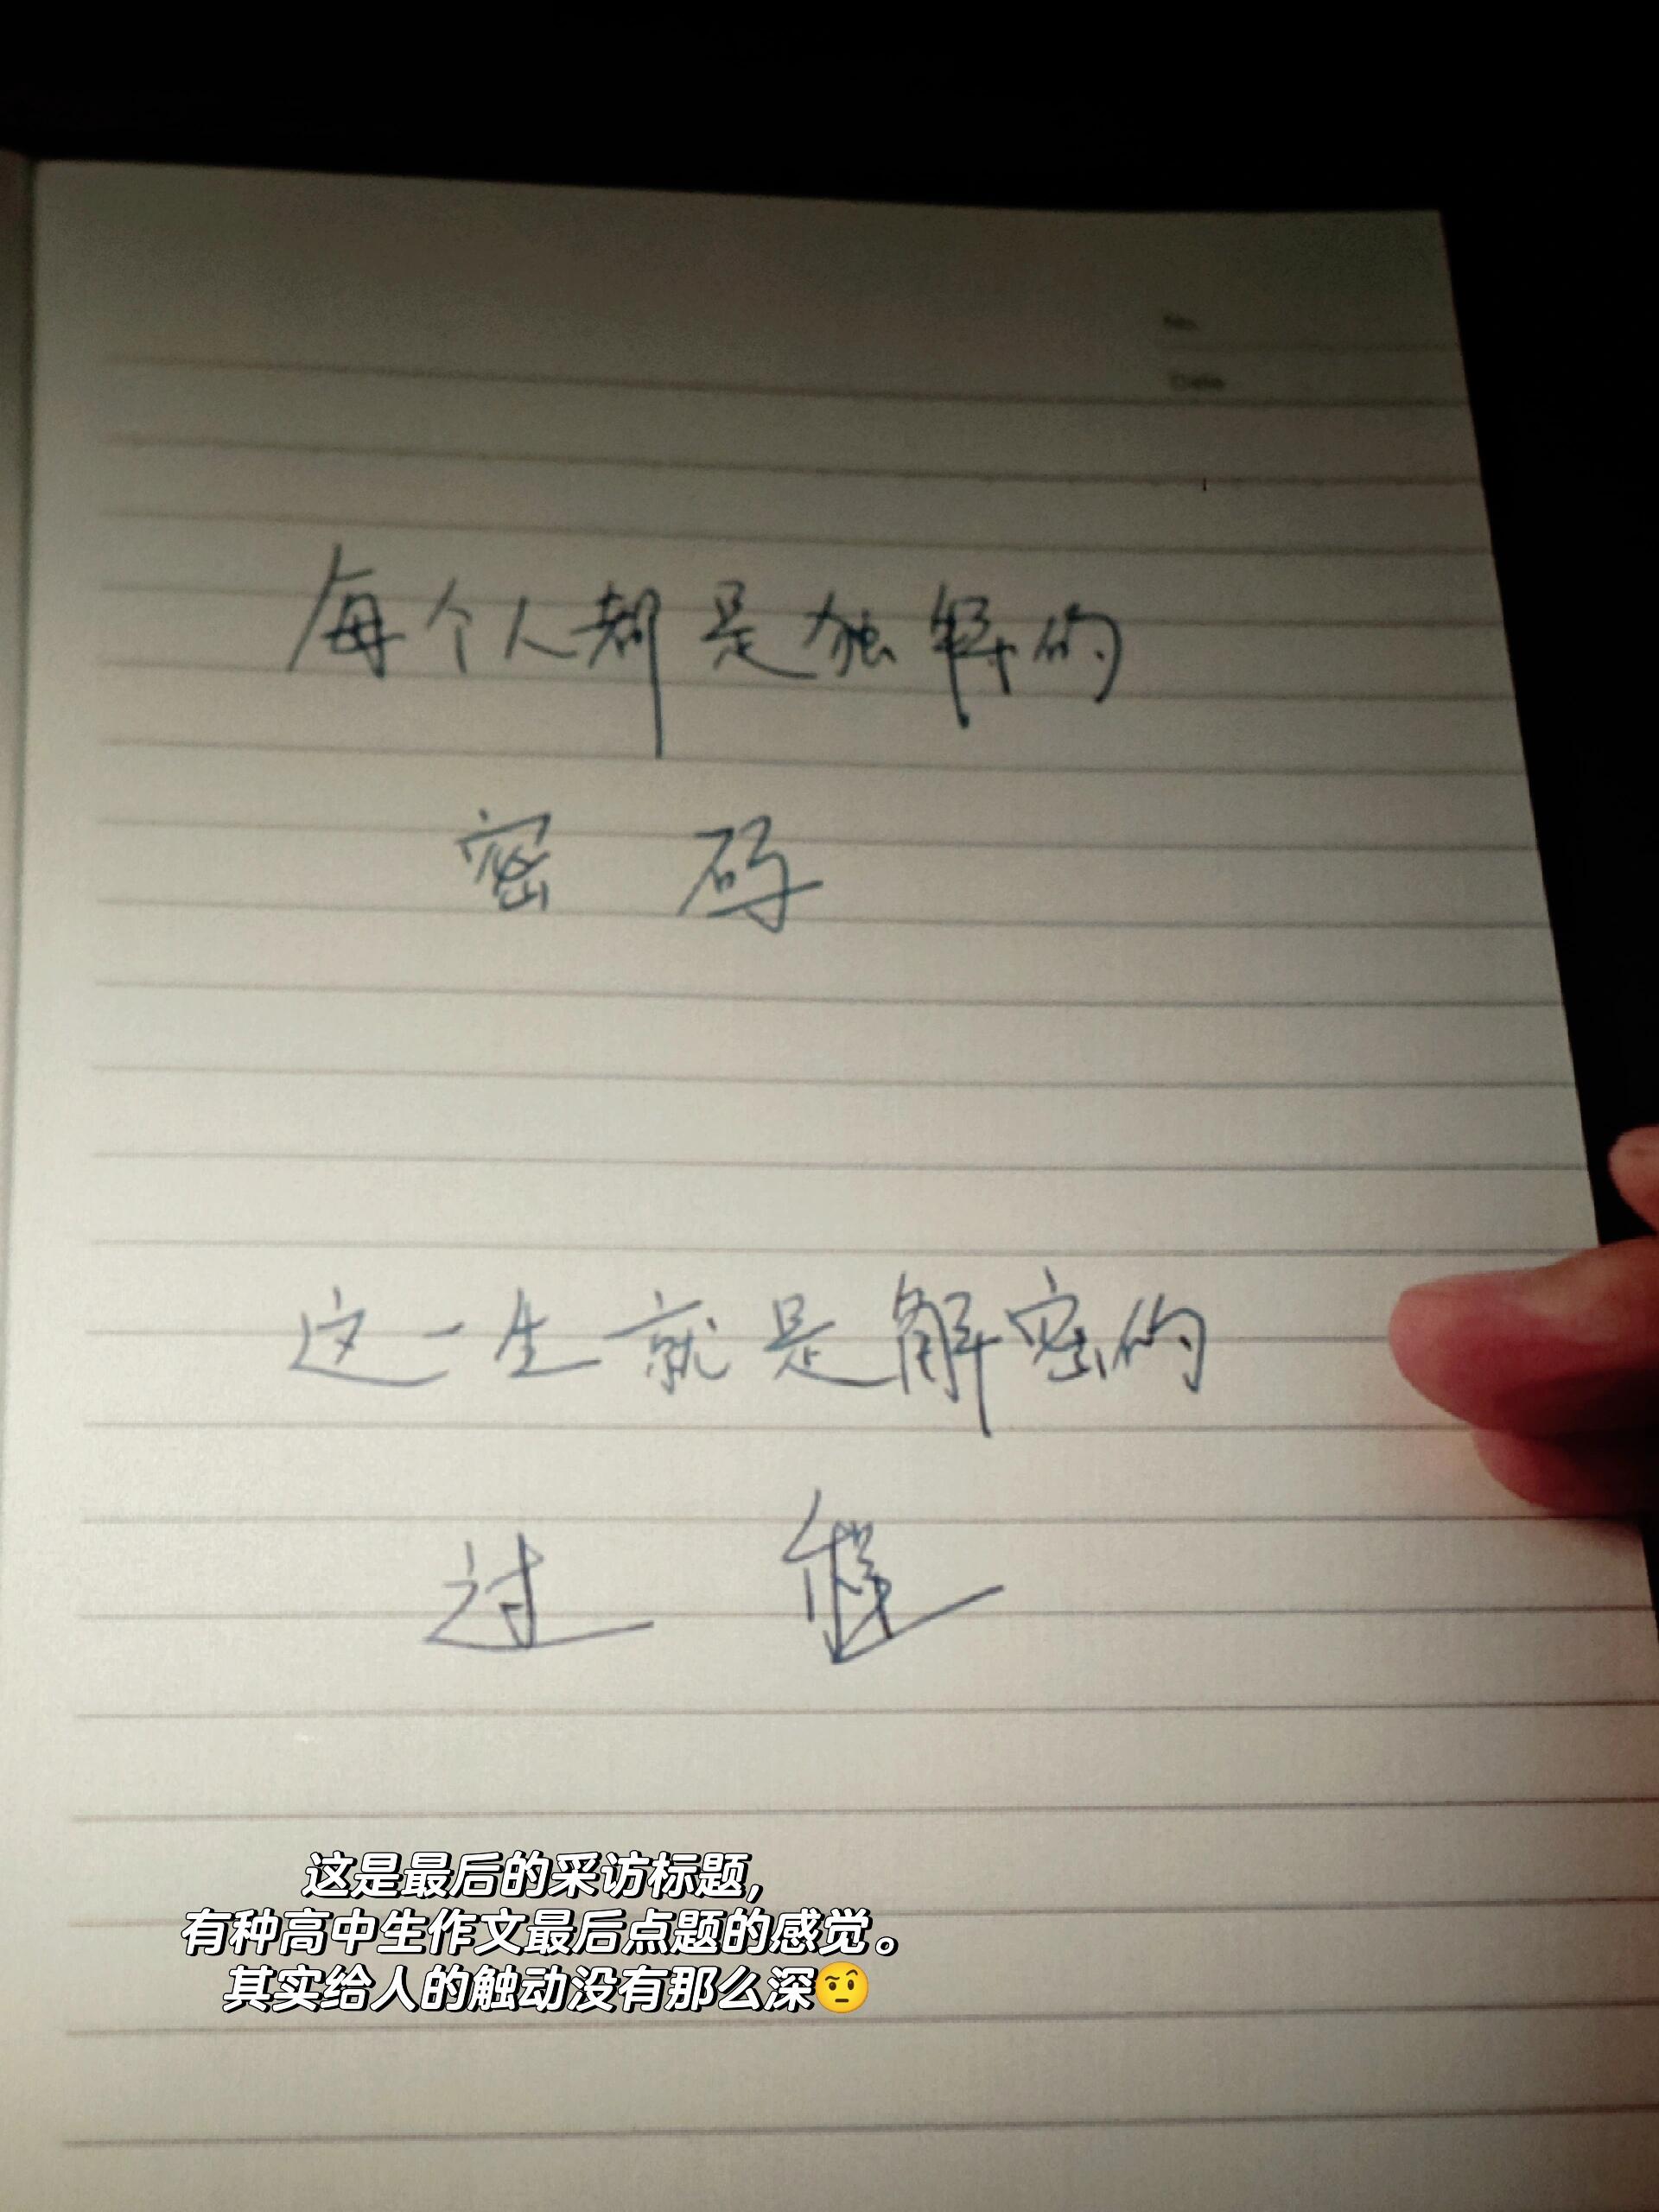 No.
Date
每个人都是独解的
密 码
这一生就是解密的
过
这是最后的采访标题,
有种高中生作文最后点题的感觉。
其实给人的触动没有那么深🤨